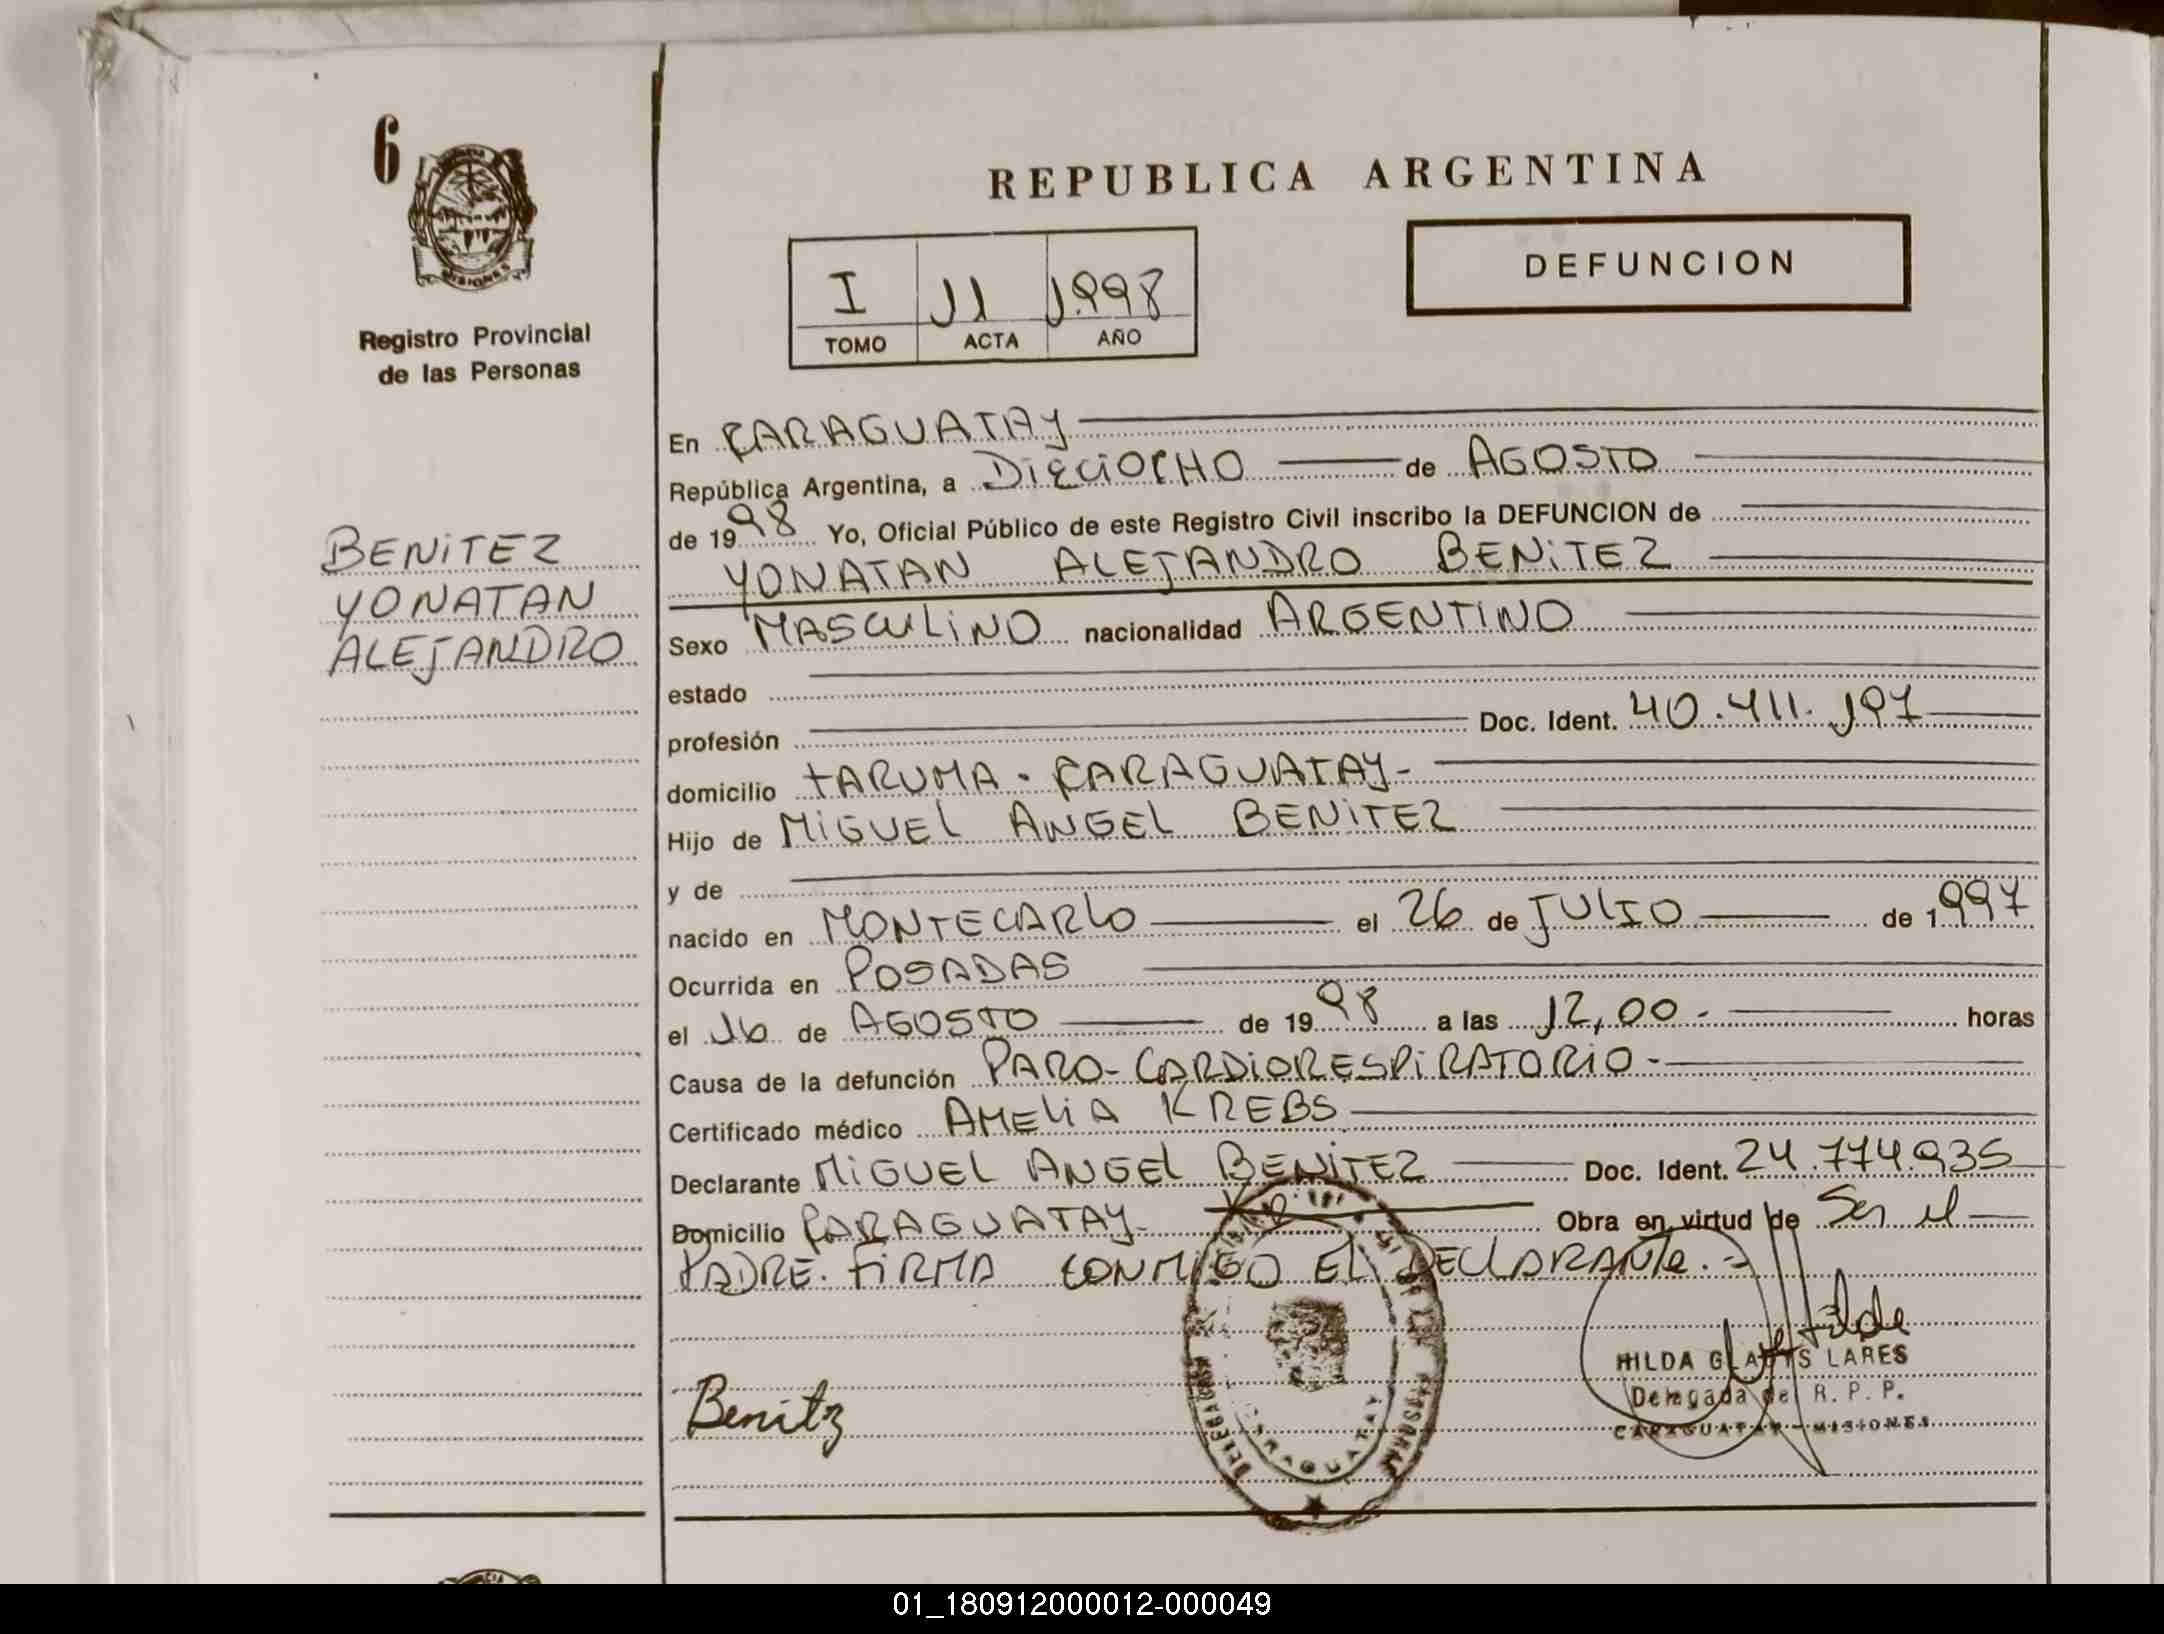 6
MISIONES
Registro Provincial
de las Personas
BENITEZ
YONATAN
ALEJANDRO
REPUBLICA ARGENTINA
DEFUNCION
I 11 1.998
TOMO ACTA AÑO
En CARAGUATAY
República Argentina, a DIECIOCHO de AGOSTO
de 1998 Yo, Oficial Público de este Registro Civil inscribo la DEFUNCION de
YONATAN ALEJANDRO BENITEZ
Sexo MASCULINO nacionalidad ARGENTINO
estado
profesión Doc. Ident. 40.411.197
domicilio TARUMA - CARAGUATAY-
Hijo de MIGUEL ANGEL BENITEZ
y de
nacido en MONTECARLO el 26 de JULIO de 1997
Ocurrida en POSADAS
el 16 de AGOSTO de 1998 a las 12,00.- horas
Causa de la defunción PARO-CARDIORESPIRATORIO-
Certificado médico AMELIA KREBS
Declarante MIGUEL ANGEL BENITEZ Doc. Ident. 24.774.935
Domicilio CARAGUATAY- Obra en virtud de Ser el
PADRE. FIRMA CONMIGO EL DECLARANTE.-
Benitz
CARAGUATAY
HILDA GLADYS LARES
Delegada del R. P. P.
CARAGUATAY - MISIONES
01_180912000012-000049